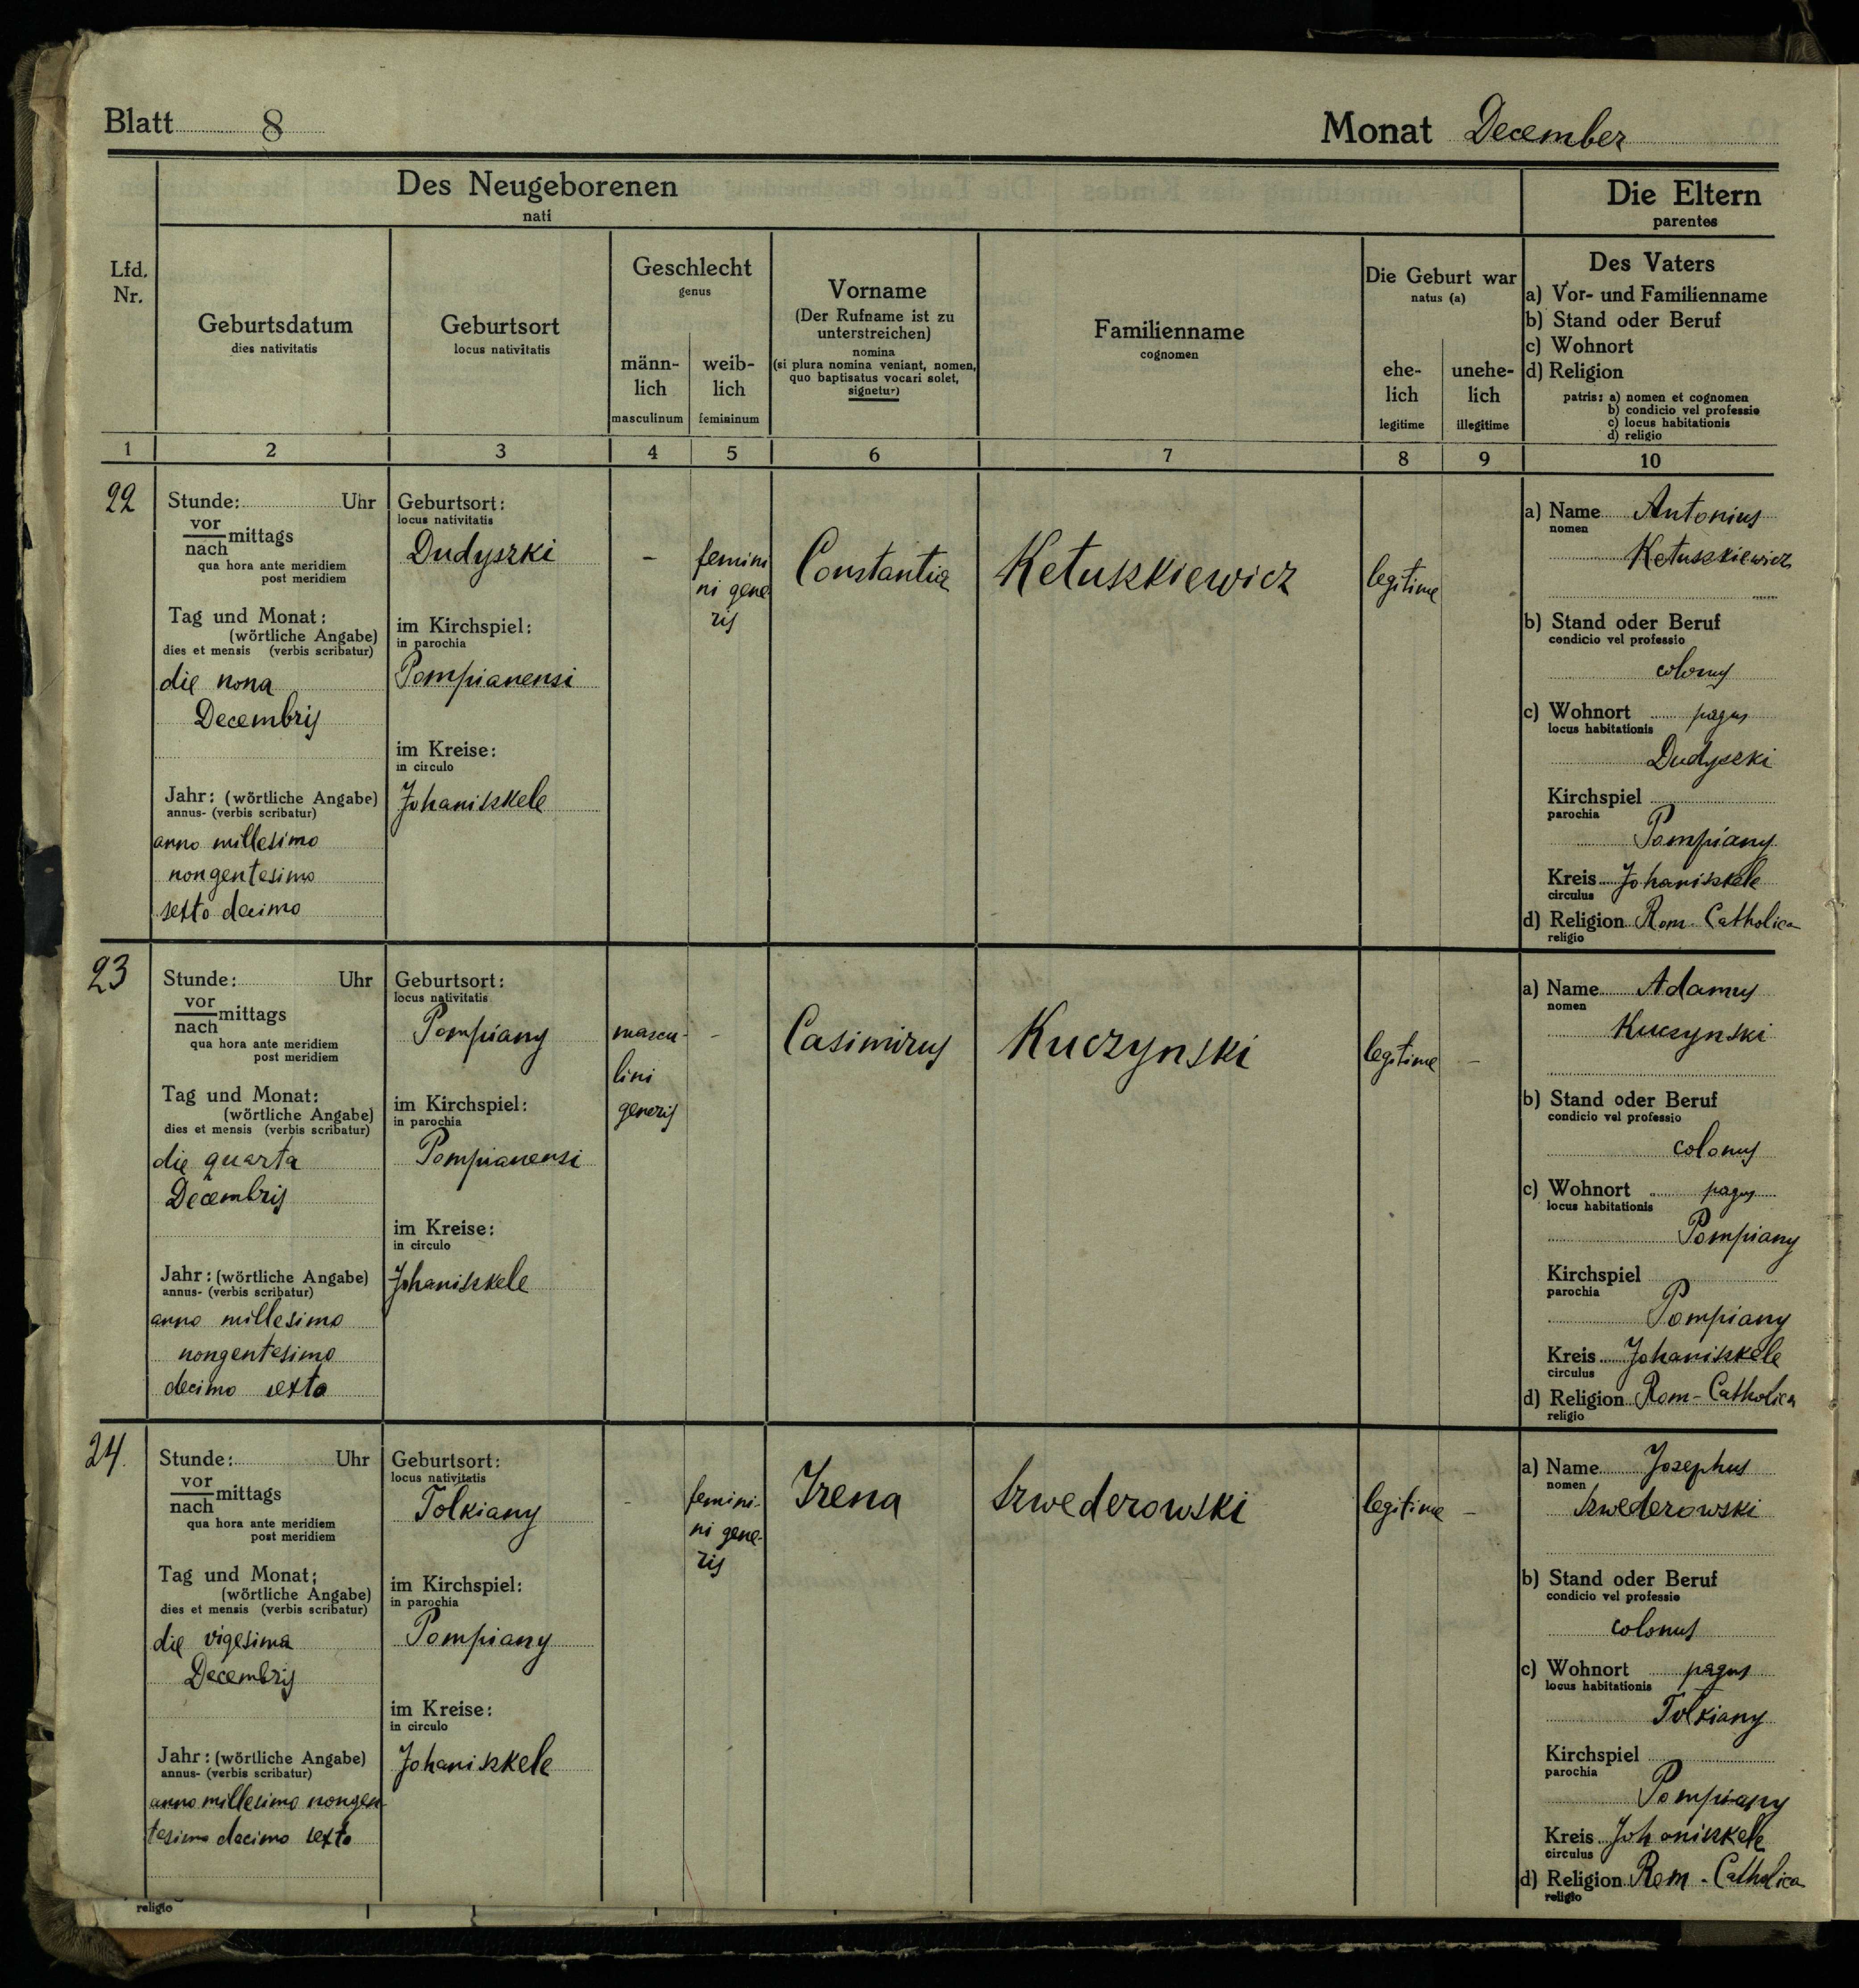 Blatt 8 Monat December
Des Neugeborenen
nati
Die Eltern
parentes
Lfd. Nr.
Geburtsdatum
dies nativitatis
Geburtsort
locus nativitatis
Geschlecht
genus
männ-
lich
masculinum
weib-
lich
femininum
Vorname
(Der Rufname ist zu
unterstreichen)
nomina
(si plura nomina veniant, nomen,
quo baptisatus vocari solet,
signetur)
Familienname
cognomen
Die Geburt war
natus (a)
ehe-
lich
legitime
unehe-
lich
illegitime
Des Vaters
a) Vor- und Familienname
b) Stand oder Beruf
c) Wohnort
d) Religion
patris: a) nomen et cognomen
b) condicio vel professio
c) locus habitationis
d) religio
1 2 3 4 5 6 7 8 9 10
22
Stunde: Uhr
vor
nach mittags
qua hora ante meridiem
post meridiem
Tag und Monat:
(wörtliche Angabe)
dies et mensis (verbis scribatur)
die nona
Decembris
Jahr: (wörtliche Angabe)
annus- (verbis scribatur)
anno millesimo
nongentesimo
sexto decimo
Geburtsort:
locus nativitatis
Dudyszki
im Kirchspiel:
in parochia
Pompianensi
im Kreise:
in circulo
Johaniszkele
-
femini
ni gene
ris
Constantia
Ketuszkiewicz
legitime
a) Name Antonius
nomen
Ketuszkiewicz
b) Stand oder Beruf
condicio vel professio
colonus
c) Wohnort pagus
locus habitationis
Dudyszki
Kirchspiel
parochia
Pompiany
Kreis Johaniszkele
circulus
d) Religion Rom. Catholica
religio
23
Stunde: Uhr
vor
nach mittags
qua hora ante meridiem
post meridiem
Tag und Monat:
(wörtliche Angabe)
dies et mensis (verbis scribatur)
die quarta
Decembris
Jahr: (wörtliche Angabe)
annus- (verbis scribatur)
anno millesimo
nongentesimo
decimo sexto
Geburtsort:
locus nativitatis
Pompiany
im Kirchspiel:
in parochia
Pompianensi
im Kreise:
in circulo
Johaniszkele
mascu-
lini
generis
-
Casimirus
Kuczynski
legitime
-
a) Name Adamus
nomen
Kuczynski
b) Stand oder Beruf
condicio vel professio
colonus
c) Wohnort pagus
locus habitationis
Pompiany
Kirchspiel
parochia
Pompiany
Kreis Johaniszkele
circulus
d) Religion Rom-Catholica
religio
24.
Stunde: Uhr
vor
nach mittags
qua hora ante meridiem
post meridiem
Tag und Monat:
(wörtliche Angabe)
dies et mensis (verbis scribatur)
die vigesima
Decembris
Jahr: (wörtliche Angabe)
annus- (verbis scribatur)
anno millesimo nongen-
tesimo decimo sexto
Geburtsort:
locus nativitatis
Tolkiany
im Kirchspiel:
in parochia
Pompiany
im Kreise:
in circulo
Johaniszkele
-
femini-
ni gene-
ris
Irena
Szwederowski
legitime
-
a) Name Josephus
nomen
Szwederowski
b) Stand oder Beruf
condicio vel professio
colonus
c) Wohnort pagus
locus habitationis
Tolkiany
Kirchspiel
parochia
Pompiany
Kreis Johaniszkele
circulus
d) Religion Rom-Catholica
religio
religio